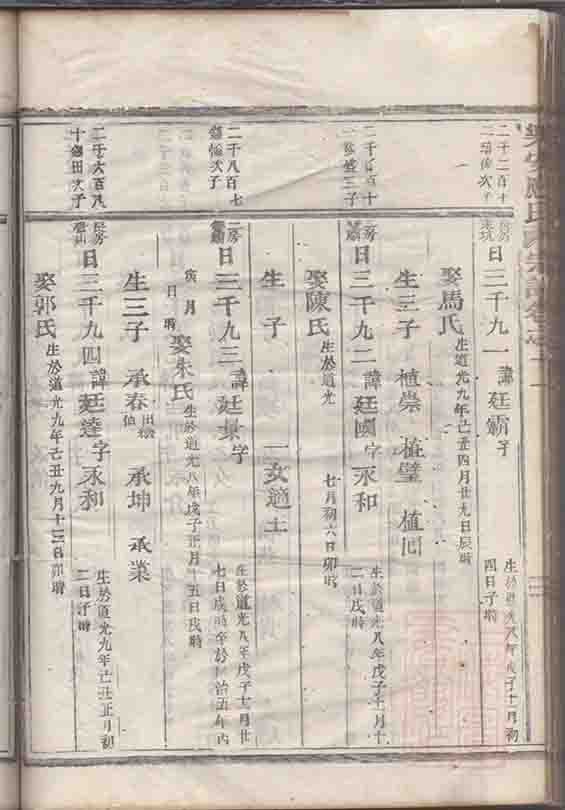 二千二百十
二 次子
日三千九一 諱廷霸字
生於道光八年戊子十一月初
四日子時
娶馬氏 生道光九年己丑四月廿九日辰時
生三子 植崇 植璧 植
二千 百十
一 盛三子
二房
日三千九二 諱廷國字永和
生於道光八年戊子十一月十
二日戌時
娶陳氏 生於道光 七月初六日卯時
生 子 一女適王
二千八百七
次子
二房
日三千九三 諱廷 字
生於道光八年戊子十二月廿
七日戌時卒於同治五年丙
寅 月 日 時
娶朱氏 生於道光八年戊子正月十五日戌時
生三子 承春 承坤 承業
二千六百八
十 田次子
長房
日三千九四 諱廷達字永和
生於道光九年己丑正月初
二日 時
娶郭氏 生於道光九年己丑九月十三日卯時